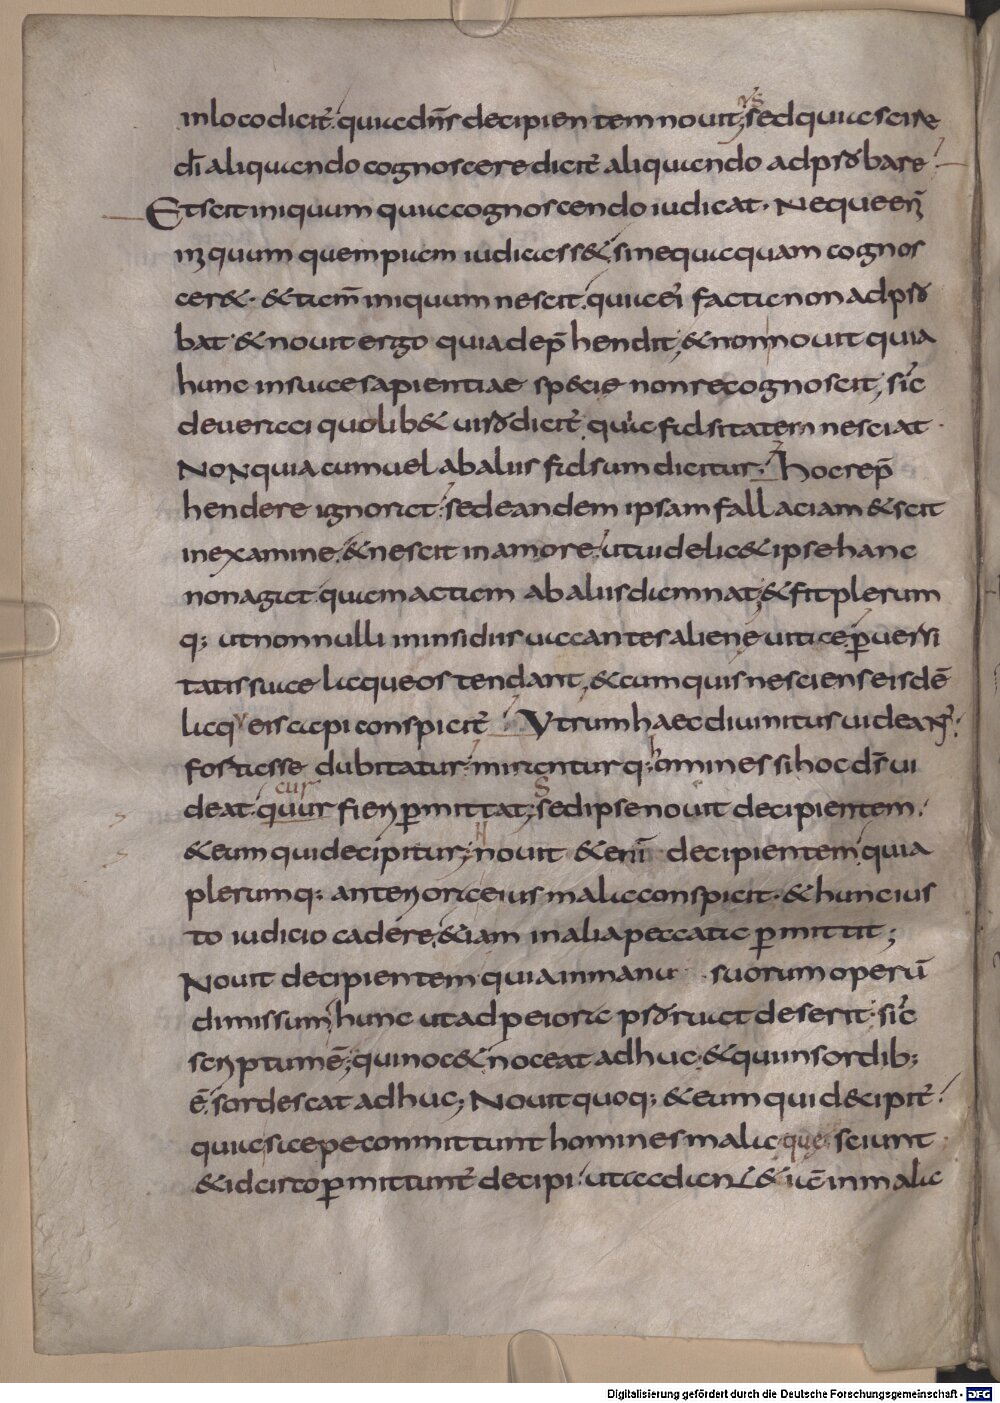 in loco dicit̄. quia dn̄s decipientem novit; sed quia scire
dī aliquando cognoscere dicit̄ aliquando adprobare.
Et scit iniquum quia cognoscendo iudicat. Neque en̄
iniquum quempiam iudicass& sinequaquam cognos
cer&. & tam̄ iniquum nescit. quia ei' facta non adpro
bat. & novit ergo quia dep̄hendit, & non novit quia
hunc in suae sapientiae specie non recognoscit, sic
de veraci quolib& viro dicit̄. quia falsitatem nesciat.
Non quia cum vel ab aliis falsum dicitur. hoc rep̄
hendere ignorat. sed eandem ipsam fallaciam & scit
in examine. & nescit in amore. ut videlic& ipse hanc
non agat. quam actam ab aliis damnat; & fit plerum
q; ut non nulli in insidiis vacantes aliene vitae p̄versi
tatis suae laqueos tendant, & cum quis nesciens eisdē
laqueis capi conspicit̄. Utrum haec divinitus videant̄.
fortasse dubitatur. mirentur q; homines si hoc dn̄s vi
deat. quur
cur
fieri p̄mittat; sed ipse novit decipientem.
& eum qui decipitur; novit & enī decipientem quia
plerumq; anteriora eius mala conspicit. & hunc ius
to iudicio cadere, & iam in alia peccata p̄mittit;
Novit decipientem quia in manu suorum operū
dimissum hunc ut ad peiora proruat deserit. sic
scriptum ē; qui noc& noceat adhuc. & qui in sordib;
ē. sordescat adhuc; Novit quoq; & eum qui decipit̄.
quia saepe committunt homines mala que sciunt.
& idcirco p̄mittunt̄ decipi. ut cadant & iā in mala
Digitalisierung gefördert durch die Deutsche Forschungsgemeinschaft - DFG